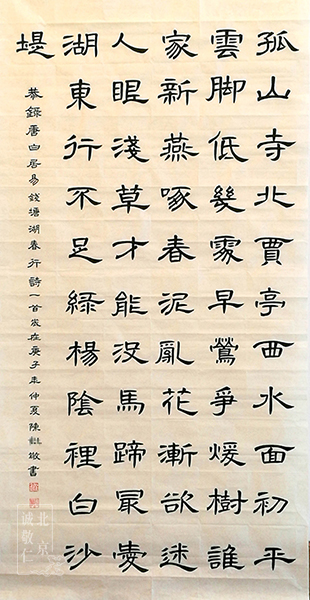 孤山寺北賈亭西水面初平
雲脚低幾處早鶯爭煖樹誰
家新燕啄春泥亂花漸欲迷
人眼淺草才能没馬蹄最愛
湖東行不足綠楊陰裡白沙
堤
恭錄唐白居易錢塘湖春行詩一首歲在庚子年仲夏陳敬書
北京
诚敬仁